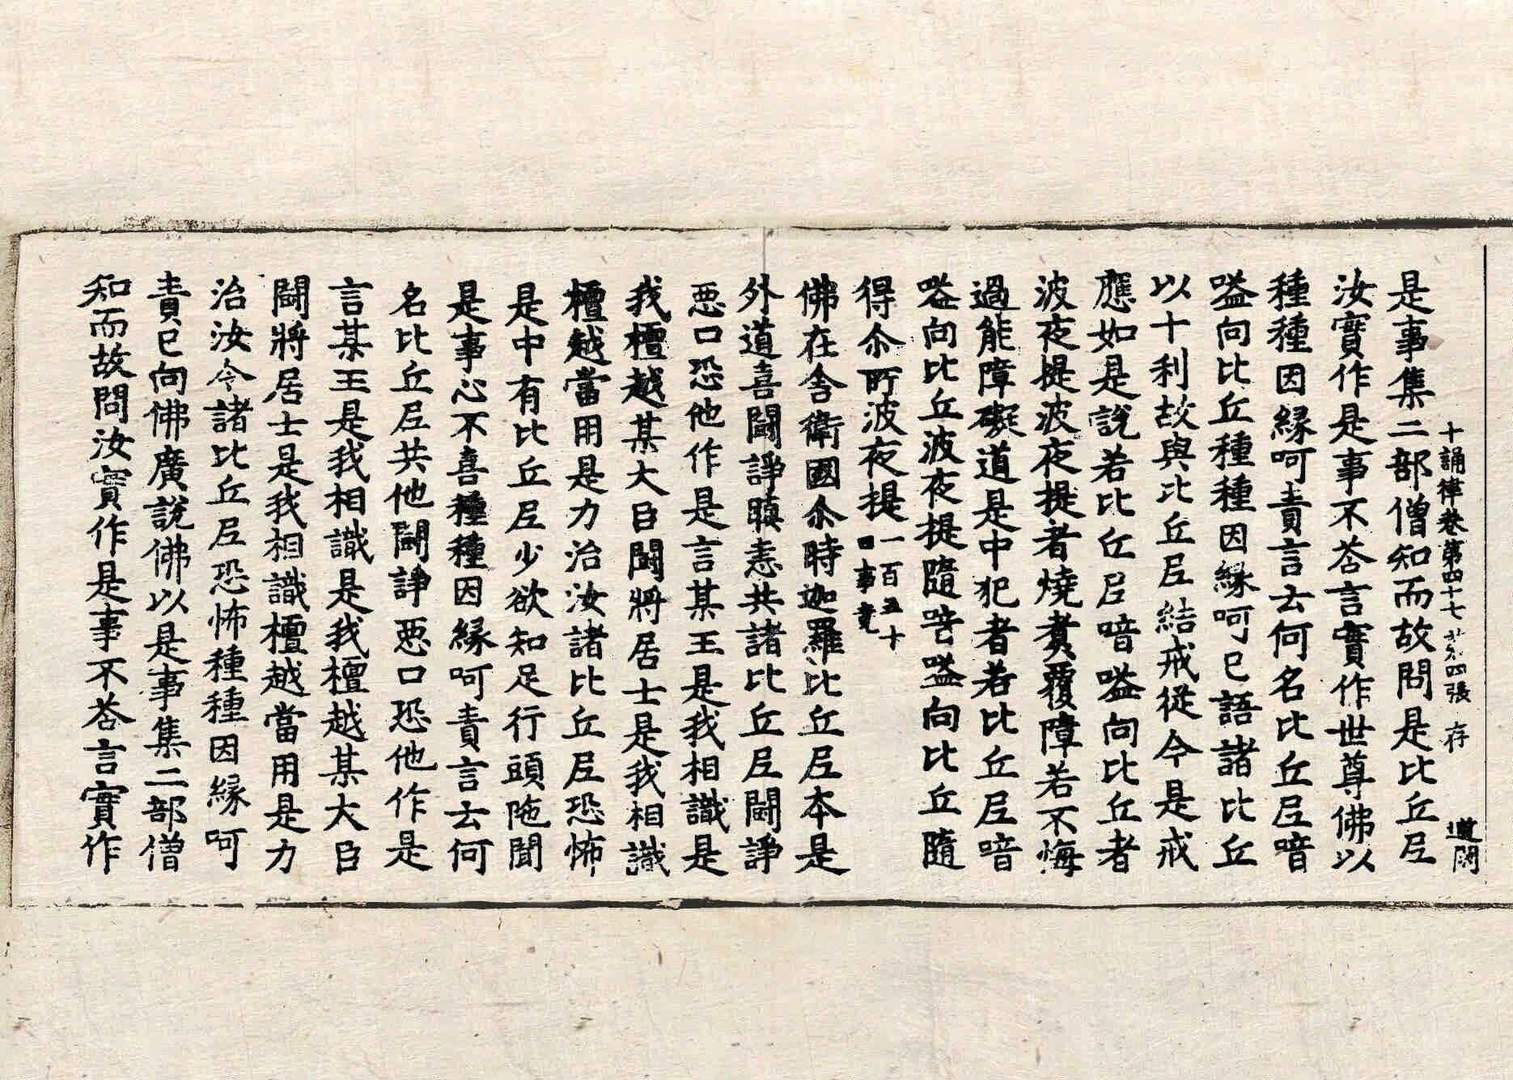 十誦律卷第四十七 四張 存
是事集二部僧知而故問是比丘尼
汝實作是事不荅言實作世尊佛以
種種因緣呵責言云何名比丘尼喑
嗌向比丘種種因緣呵已語諸比丘
以十利故與比丘尼結戒從今是戒
應如是說若比丘尼喑嗌向比丘者
波夜提波夜提者燒煑覆障若不悔
過能障礙道是中犯者若比丘尼喑
嗌向比丘波夜提隨喑嗌向比丘隨
得尒所波夜提一百五十四事竟
佛在舍衛國尒時迦羅比丘尼本是
外道喜鬪諍瞋恚共諸比丘尼鬪諍
惡口恐他作是言某王是我相識是
我檀越某大臣鬪將居士是我相識
檀越當用是力治汝諸比丘尼恐怖
是中有比丘尼少欲知足行頭陁聞
是事心不喜種種因緣呵責言云何
名比丘尼共他鬪諍惡口恐他作是
言某王是我相識是我檀越某大臣
鬪將居士是我相識檀越當用是力
治汝令諸比丘尼恐怖種種因緣呵
責已向佛廣說佛以是事集二部僧
知而故問汝實作是事不荅言實作